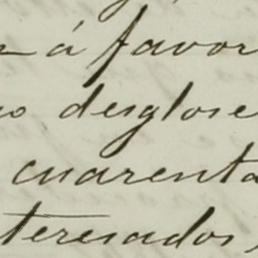 á favor
desglose
cuarenta
teresados,